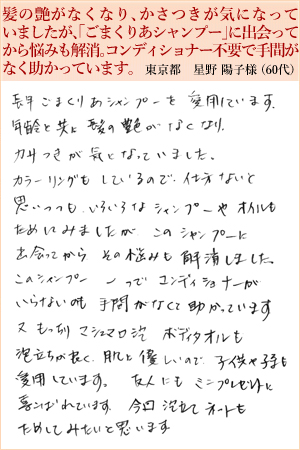 髪の艶がなくなり、かさつきが気になって
いましたが、「ごまくりあシャンプー」に出会って
から悩みも解消。コンディショナー不要で手間が
なく助かっています。 東京都 星野 陽子様(60代)
長年ごまくりあシャンプーを愛用しています。
年齢と共に髪の艶がなくなり、
カサつきが気になっていました。
カラーリングもしているので、仕方ないと
思いつつも、いろいろなシャンプーやオイルも
ためしてみましたが このシャンプーに
出会ってから その悩みも解消しました。
このシャンプー 一つでコンディショナーが
いらないのも 手間がなくて助かっています
又 もっちりマシュマロ泡 ボディタオルも
泡立ちが良く、肌に優しいので、子供や
愛用しています。 友人にもミニプレゼントに
喜ばれています。 今回 泡立てネットも
ためしてみたいと思います